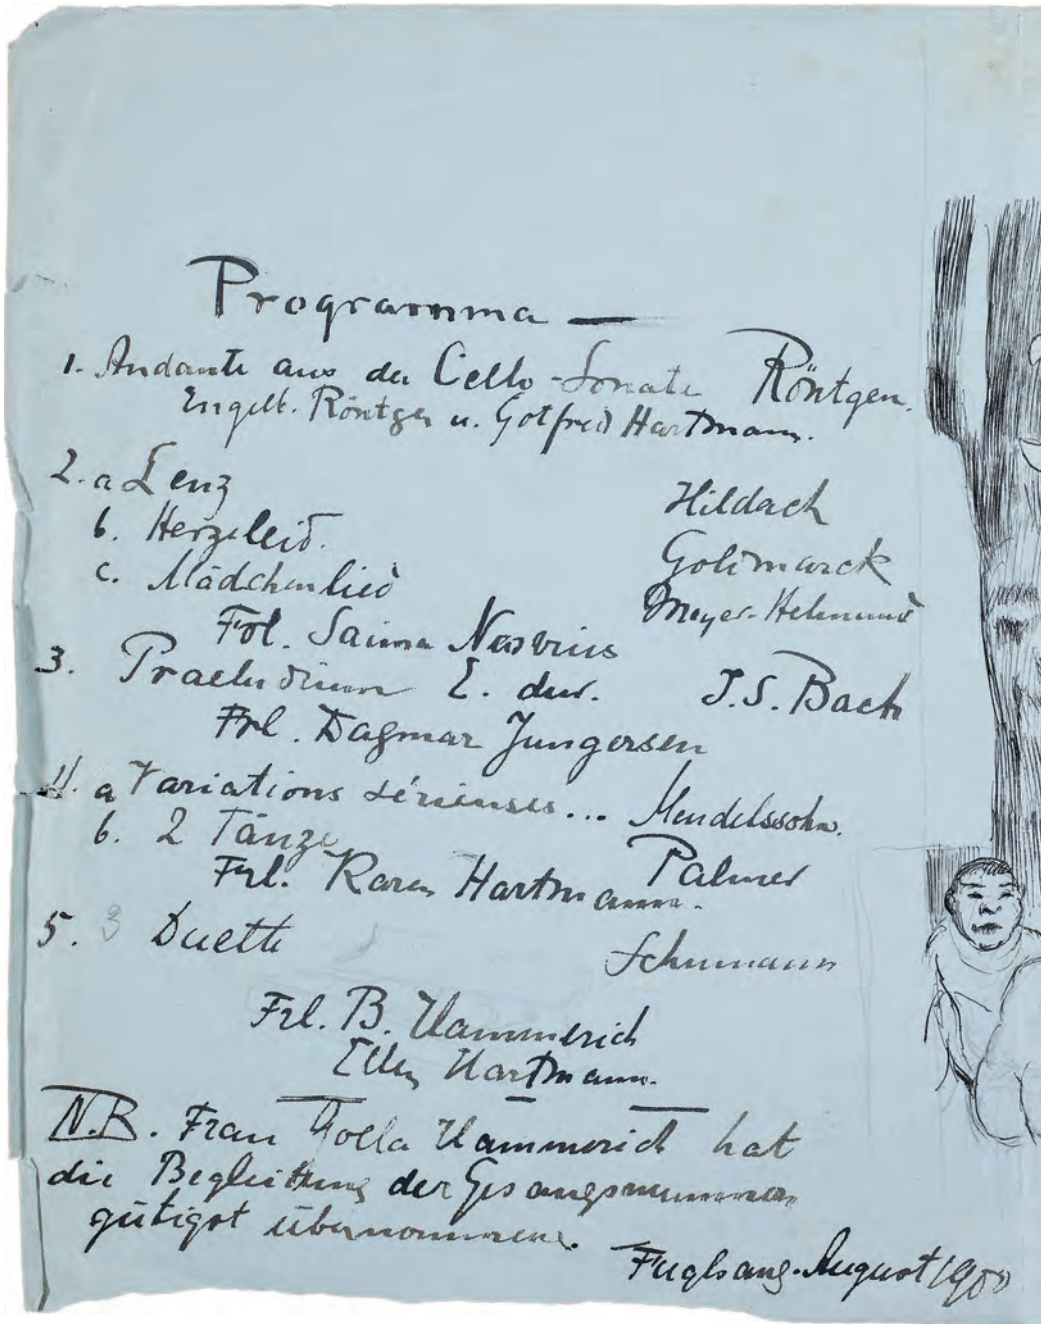 Programma —
1. Andante aus der Cello-Sonate Röntgen.
Engelb. Röntgen u. Gotfred Hartmann.
2. a Lenz Hildach
b. Herzeleid. Goldmarck
c. Mädchenlied Meyer-Helmund
Frl. Saima Neovius
3. Praeludium E. dur. J. S. Bach
Frl. Dagmar Jungersen
4. a Variations sérieuses... Mendelssohn.
b. 2 Tänze Palmer
Frl. Karen Hartmann.
5. 3 Duette Schumann
Frl. B. Hammerich
Ellen Hartmann.
N.B. Frau Golla Hammerich hat
die Begleitung der Gesangsnummern
gütigst übernommen.
Fuglsang. August 1900